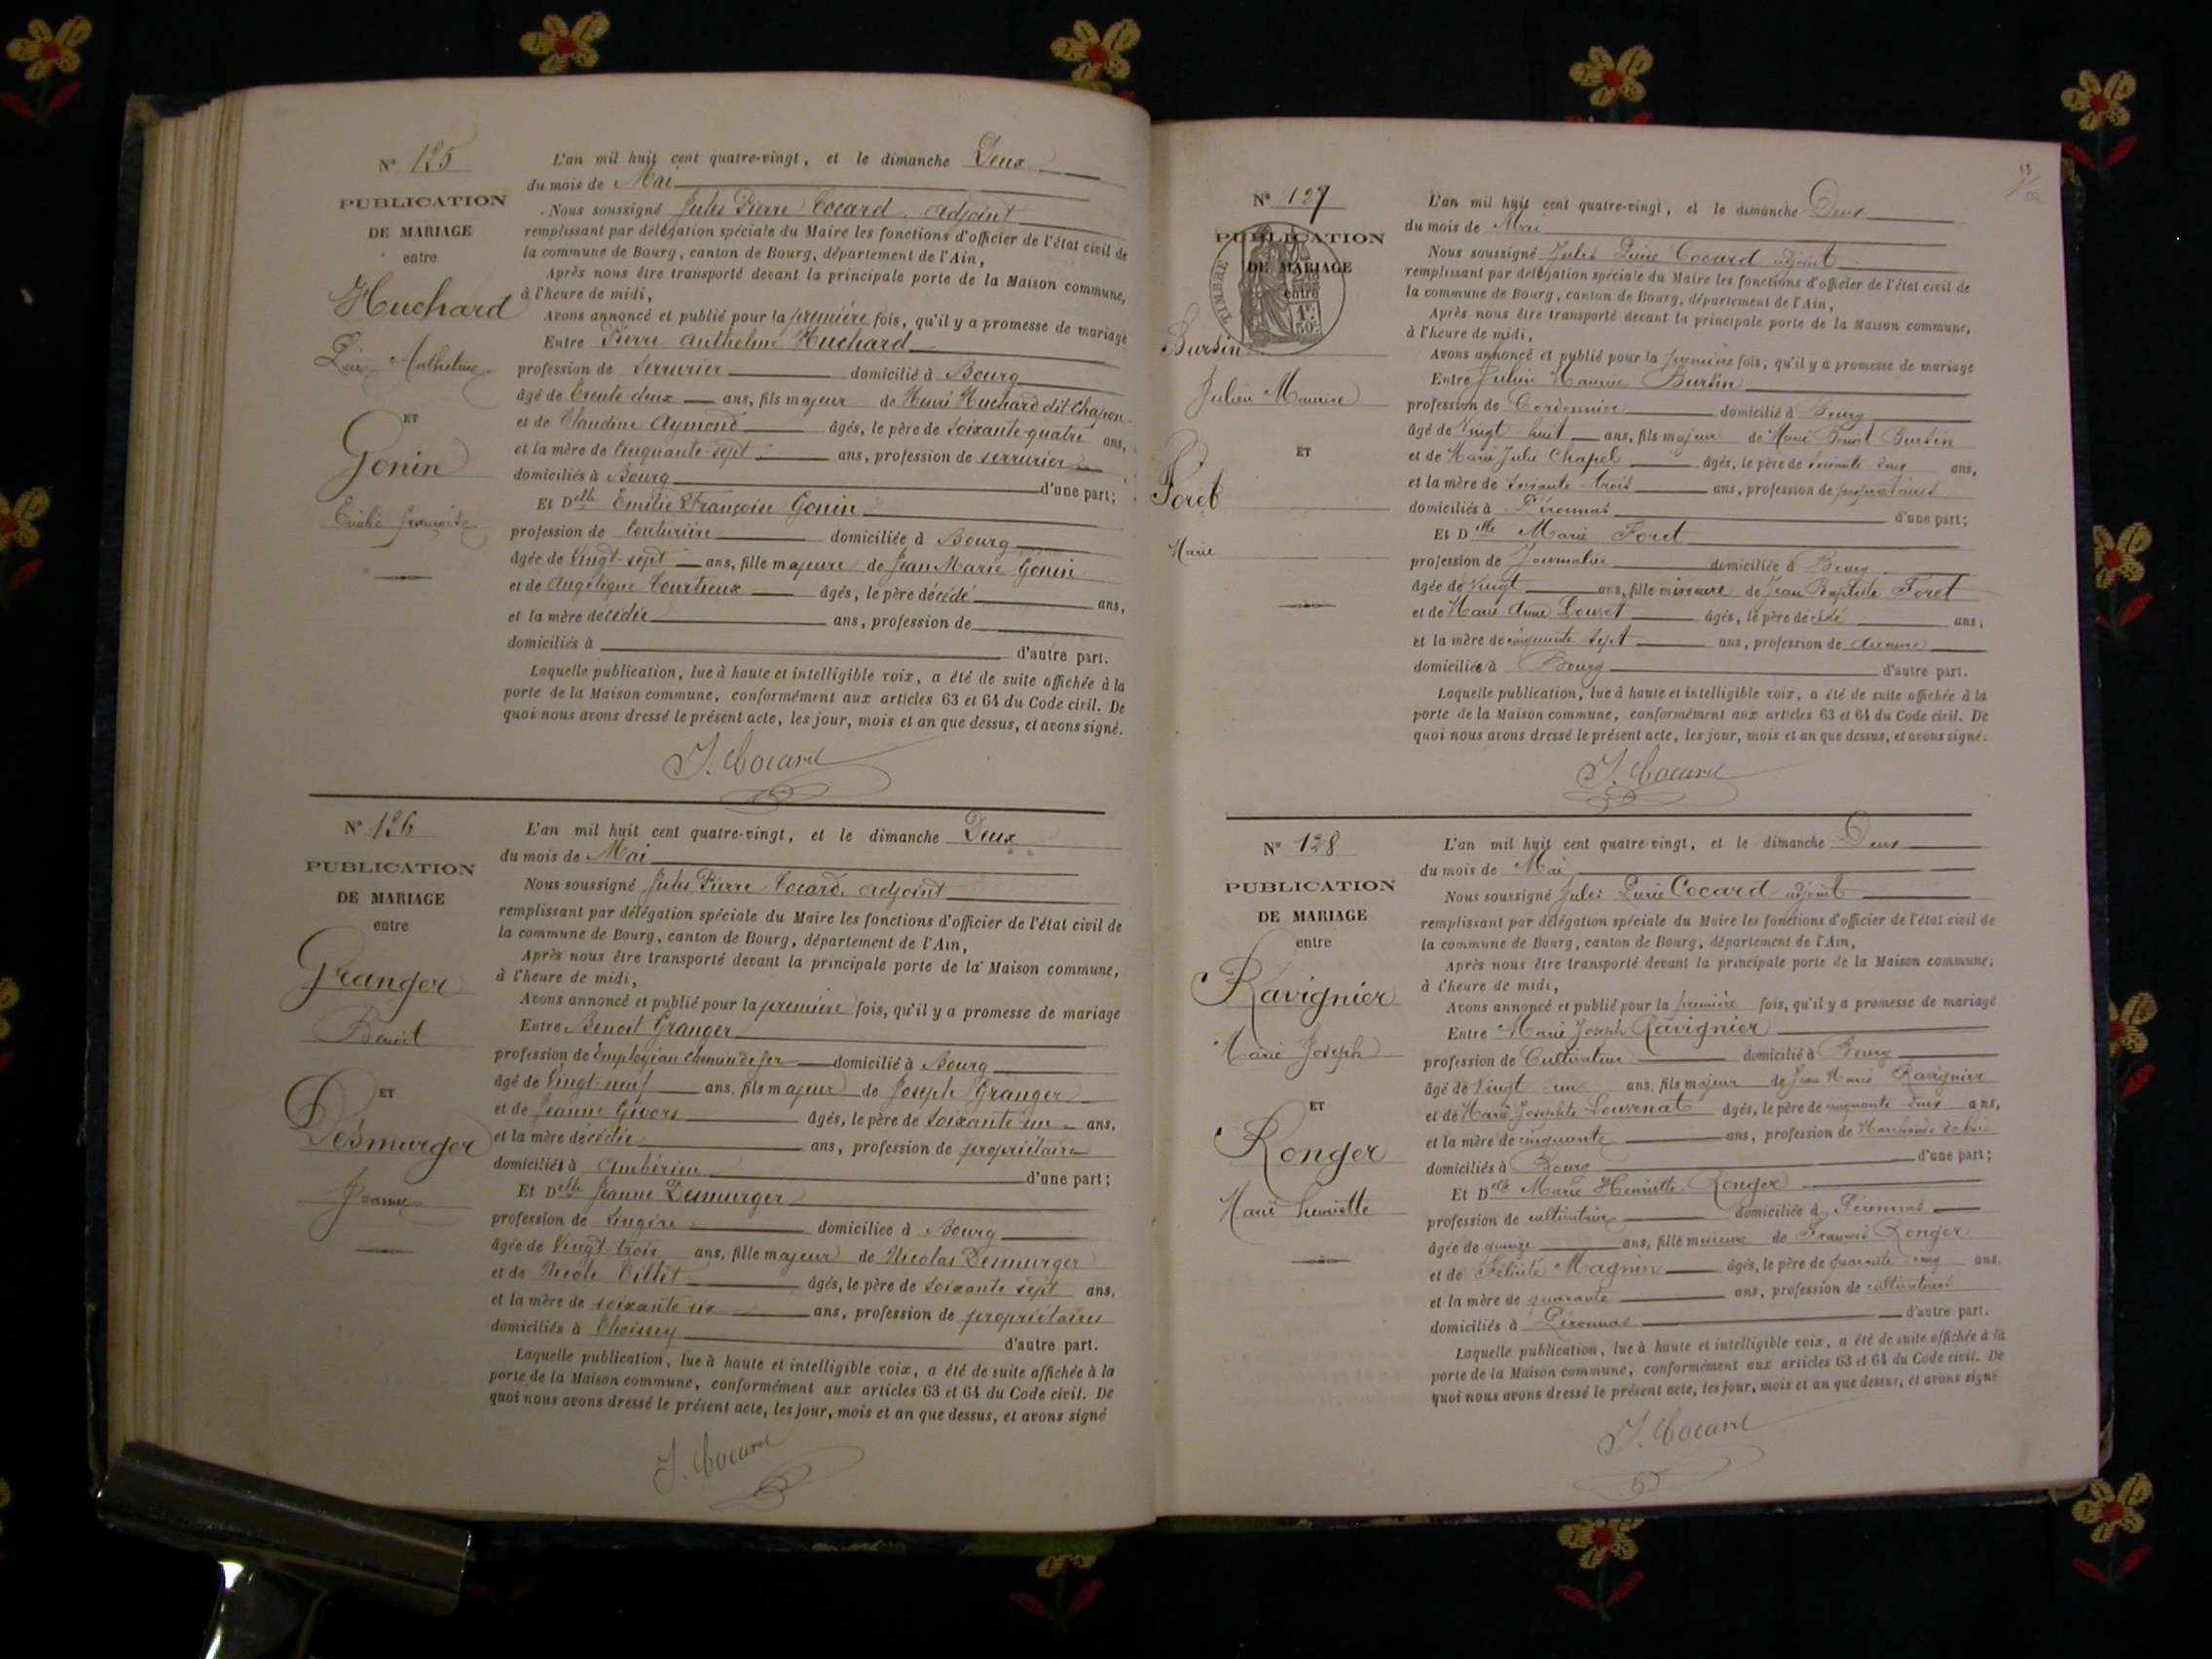 N° 125
PUBLICATION
DE MARIAGE
entre
Huchard
Pierre Anthelme
ET
Gonin
Emilie Françoise
L'an mil huit cent quatre-vingt, et le dimanche Deux
du mois de Mai
Nous soussigné Jules Pierre Cocard, adjoint
remplissant par délégation spéciale du Maire les fonctions d'officier de l'état civil de
la commune de Bourg, canton de Bourg, département de l'Ain,
Après nous être transporté devant la principale porte de la Maison commune,
à l'heure de midi,
Avons annoncé et publié pour la première fois, qu'il y a promesse de mariage
Entre Pierre Anthelme Huchard
profession de Serrurier domicilié à Bourg
âgé de trente deux ans, fils majeur de Henri Huchard dit Chapon
et de Claudine Aymond âgés, le père de soixante-quatre ans,
et la mère de Cinquante-sept ans, profession de serrurier
domiciliés à Bourg d'une part;
Et Delle Emilie Françoise Gonin
profession de Couturière domiciliée à Bourg
âgée de Vingt-sept ans, fille majeure de Jean Marie Gonin
et de Angélique Courtieux âgés, le père décédé ans,
et la mère décédée ans, profession de
domiciliés à d'autre part.
Laquelle publication, lue à haute et intelligible voix, a été de suite affichée à la
porte de la Maison commune, conformément aux articles 63 et 64 du Code civil. De
quoi nous avons dressé le présent acte, les jour, mois et an que dessus, et avons signé.
J. Cocard
N° 126
PUBLICATION
DE MARIAGE
entre
Granger
Benoit
ET
Desmurger
Jeanne
L'an mil huit cent quatre-vingt, et le dimanche Deux
du mois de Mai
Nous soussigné Jules Pierre Cocard, adjoint
remplissant par délégation spéciale du Maire les fonctions d'officier de l'état civil de
la commune de Bourg, canton de Bourg, département de l'Ain,
Après nous être transporté devant la principale porte de la Maison commune,
à l'heure de midi,
Avons annoncé et publié pour la première fois, qu'il y a promesse de mariage
Entre Benoit Granger
profession de Employé au Chemin de fer domicilié à Bourg
âgé de Vingt-neuf ans, fils majeur de Joseph Granger
et de Jeanne Givors âgés, le père de soixante un ans,
et la mère décédée ans, profession de propriétaire
domiciliés à Ambérieu d'une part;
Et Delle Jeanne Desmurger
profession de Lingère domiciliée à Bourg
âgée de Vingt-trois ans, fille majeur de Nicolas Desmurger
et de Nicole Billet âgés, le père de soixante sept ans,
et la mère de soixante six ans, profession de propriétaires
domiciliés à Thoissey d'autre part.
Laquelle publication, lue à haute et intelligible voix, a été de suite affichée à la
porte de la Maison commune, conformément aux articles 63 et 64 du Code civil. De
quoi nous avons dressé le présent acte, les jour, mois et an que dessus, et avons signé
J. Cocard
N° 127
PUBLICATION
DE MARIAGE
entre
TIMBRE
1F.
50c
Bursin
Julien Maurice
ET
Foret
Marie
L'an mil huit cent quatre-vingt, et le dimanche Deux
du mois de Mai
Nous soussigné Jules Pierre Cocard adjoint
remplissant par délégation spéciale du Maire les fonctions d'officier de l'état civil de
la commune de Bourg, canton de Bourg, département de l'Ain,
Après nous être transporté devant la principale porte de la Maison commune,
à l'heure de midi,
Avons annoncé et publié pour la première fois, qu'il y a promesse de mariage
Entre Julien Maurice Bursin
profession de Cordonnier domicilié à Bourg
âgé de Vingt-huit ans, fils majeur de Marie Benoit Bursin
et de Marie Julie Chapel âgés, le père de soixante deux ans,
et la mère de soixante-trois ans, profession de propriétaires
domiciliés à Péronnas d'une part;
Et Delle Marie Foret
profession de Journalière domiciliée à Bourg
âgée de Vingt ans, fille mineure de Jean Baptiste Foret
et de Marie Anne Louvet âgés, le père décédé ans,
et la mère de cinquante sept ans, profession de aucune
domiciliée à Bourg d'autre part.
Laquelle publication, lue à haute et intelligible voix, a été de suite affichée à la
porte de la Maison commune, conformément aux articles 63 et 64 du Code civil. De
quoi nous avons dressé le présent acte, les jour, mois et an que dessus, et avons signé.
J. Cocard
N° 128
PUBLICATION
DE MARIAGE
entre
Ravignier
Marie Joseph
ET
Ronger
Marie henriette
L'an mil huit cent quatre-vingt, et le dimanche Deux
du mois de Mai
Nous soussigné Jules Pierre Cocard adjoint
remplissant par délégation spéciale du Maire les fonctions d'officier de l'état civil de
la commune de Bourg, canton de Bourg, département de l'Ain,
Après nous être transporté devant la principale porte de la Maison commune,
à l'heure de midi,
Avons annoncé et publié pour la première fois, qu'il y a promesse de mariage
Entre Marie Joseph Ravignier
profession de Cultivateur domicilié à Bourg
âgé de Vingt-un ans, fils majeur de Jean Marie Ravignier
et de Marie Josephte Louvenat âgés, le père de cinquante deux ans,
et la mère de cinquante ans, profession de Marchands de
domiciliés à Bourg d'une part;
Et Delle Marie Henriette Ronger
profession de cultivatrice domiciliée à Péronnas
âgée de quinze ans, fille mineure de François Ronger
et de Félicité Magnin âgés, le père de quarante cinq ans
et la mère de quarante ans, profession de cultivateurs
domiciliés à Péronnas d'autre part.
Laquelle publication, lue à haute et intelligible voix, a été de suite affichée à la
porte de la Maison commune, conformément aux articles 63 et 64 du Code civil. De
quoi nous avons dressé le présent acte, les jour, mois et an que dessus, et avons signé
J. Cocard